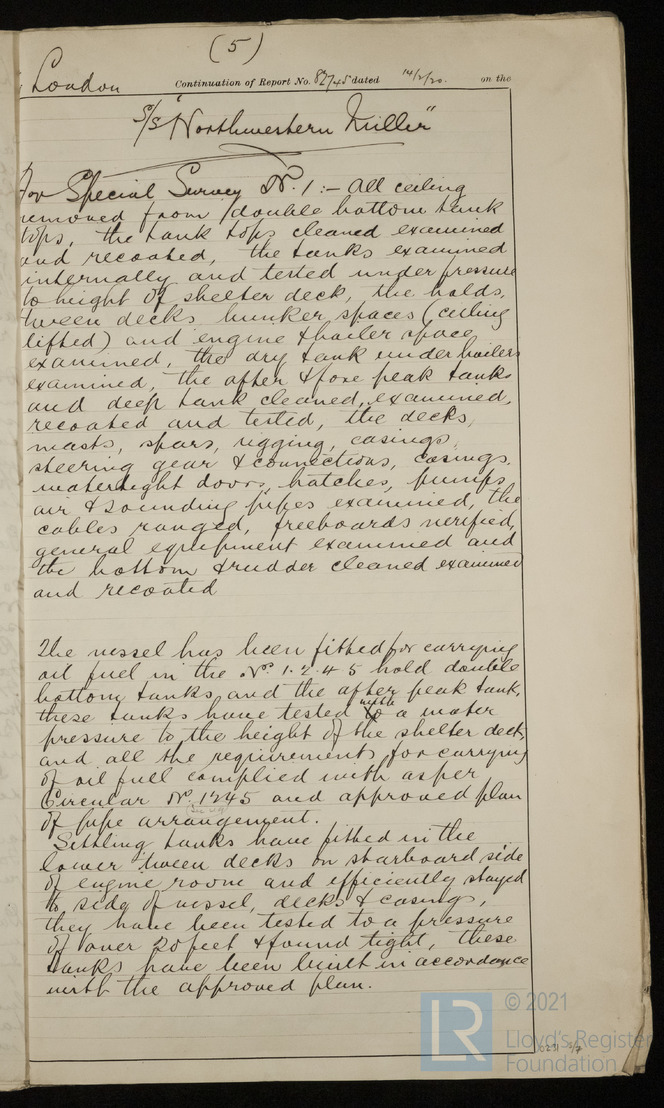 (5)
London Continuation of Report No. 82745 dated 14/2/20. on the
S/S "Northwestern Miller"
For Special Survey No. 1:- All ceiling
removed from double bottom tank
tops, the tank tops cleaned examined
and recoated, the tanks examined
internally and tested under pressure
to height of shelter deck, the holds,
tween decks bunker spaces (ceiling
lifted) and engine & boiler space
examined, the dry tank under boilers
examined, the after & fore peak tanks
and deep tank cleaned, examined,
recoated and tested, the decks,
masts, spars, rigging, casings,
steering gear & connections, casings.
watertight doors, hatches, pumps,
air & sounding pipes examined, the
cables ranged, freeboards verified,
general equipment examined and
the bottom & rudder cleaned examined
and recoated
The vessel has been fitted for carrying
oil fuel in the No. 1. 2. 4 5 hold double
bottom tanks and the after peak tank,
these tanks have tested with a water
pressure to the height of the shelter deck
and all the requirements for carrying
of oil fuel complied with as per
Circular No. 1245 and approved plan
of pipe arrangement.
Settling tanks have fitted in the
lower 'tween decks on starboard side
of engine room and efficiently stayed
to side of vessel, decks & casings,
they have been tested to a pressure
of over 20 feet & found tight, these
tanks have been built in accordance
with the approved plan.
LR © 2021
Lloyd's Register
Foundation